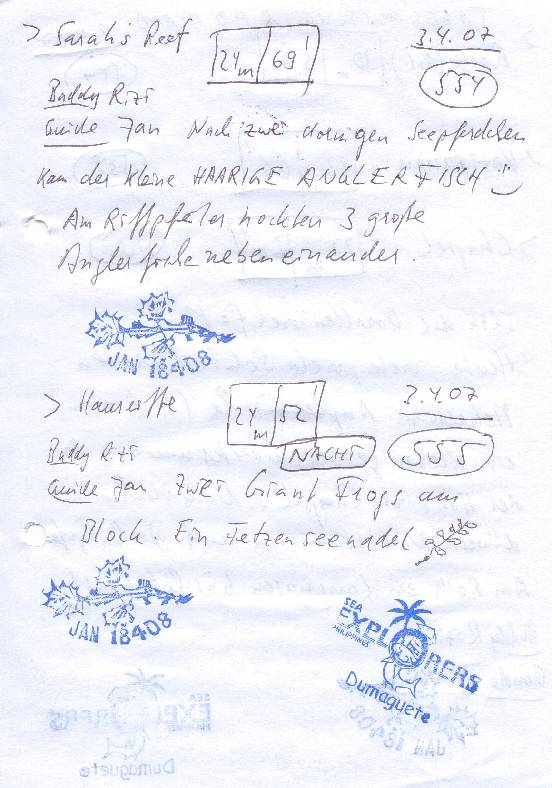 > Sarah's Reef 24m 69' 3.4.07
554
Buddy Rizi
Guide Jan Nach zwei dornigen Seepferdchen
kam der kleine HAARIGE ANGLERFISCH
Am Riffpfeiler hockten 3 große
Anglerfische nebeneinander.
JAN 18408
> Hausriffe 24m 52' 3.4.07
Buddy Rizi NACHT 555
Guide Jan Zwei Giant Frogs am
Block. Ein Fetzenseenadel
JAN 18408
SEA
EXPLORERS
PHILIPPINES
Dumaguete